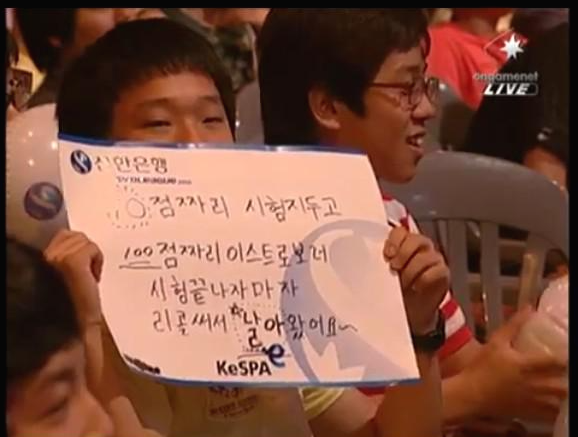 신한은행
PROLEAGUE
0점짜리 시험지두고
100점짜리 이스트로보러
시험끝나자마자
리콜써서 날아왔어요~
KeSPA
ongamenet
LIVE